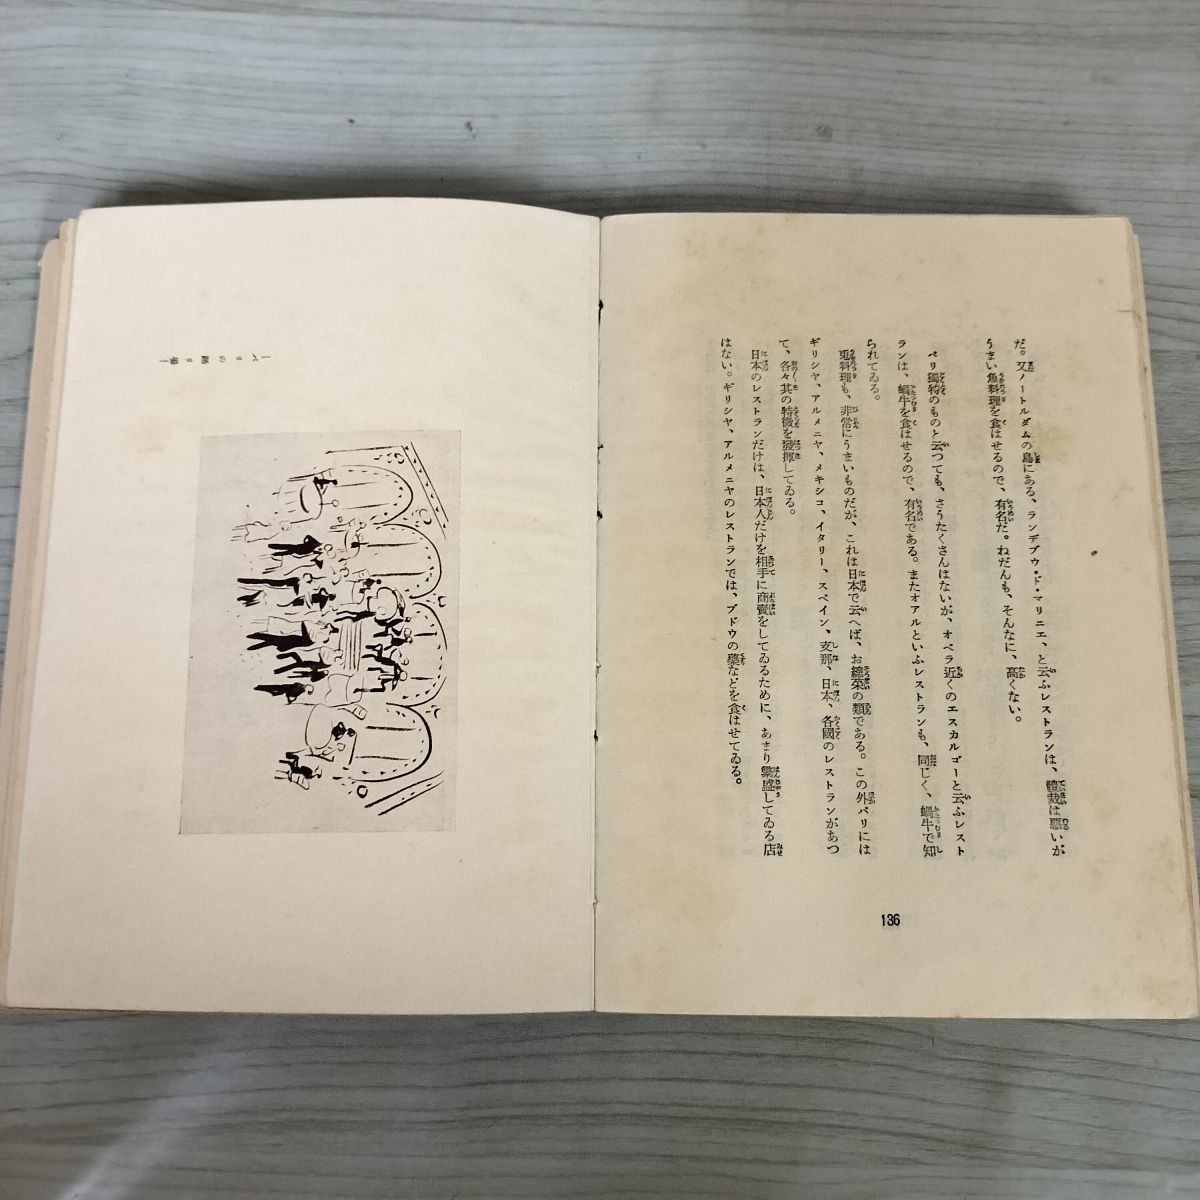 だ。又ノートルダムの島にある、ランデブウ・ド・マリニエ、と云ふレストランは、體裁は惡いが
うまい魚料理を食はせるので、有名だ。ねだんも、そんなに、高くない。
パリ獨特のものと云つても、さうたくさんはないが、オペラ近くのエスカルゴーと云ふレスト
ランは、蝸牛を食はせるので、有名である。またオアルといふレストランも、同じく、蝸牛で知
られてゐる。
料理も、非常にうまいものだが、これは日本で云へば、お總菜の類である。この外パリには
ギリシヤ、アルメニヤ、メキシコ、イタリー、スペイン、支那、日本、各國のレストランがあつ
て、各々其の特徴を發揮してゐる。
日本のレストランだけは、日本人だけを相手に商賣をしてゐるために、あまり繁盛してゐる店
はない。ギリシヤ、アルメニヤのレストランでは、ブドウの葉などを食はせてゐる。
136
―パリの踊り場―